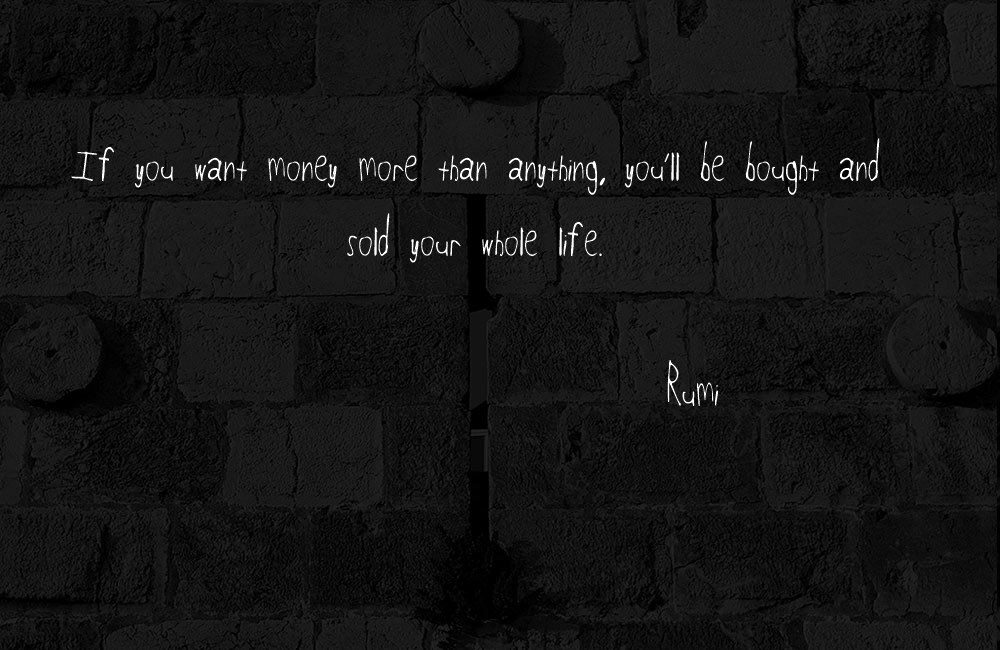 If you want money more than anything, you'll be bought and
sold your whole life.
Rumi